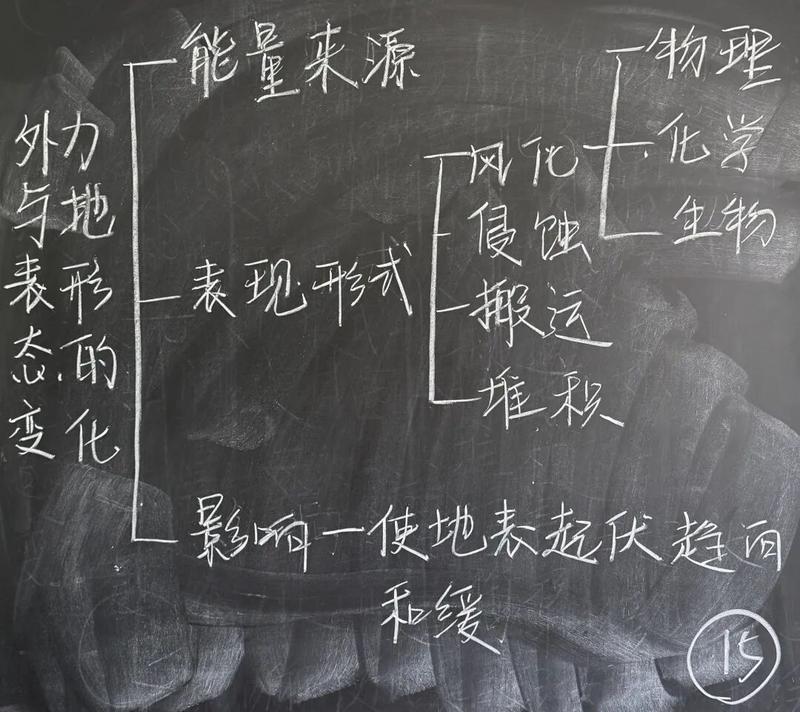 外力
与地
表形
态的
变化
能量来源
表现形式
风化
侵蚀
搬运
堆积
物理
化学
生物
影响—使地表起伏趋向
和缓
15